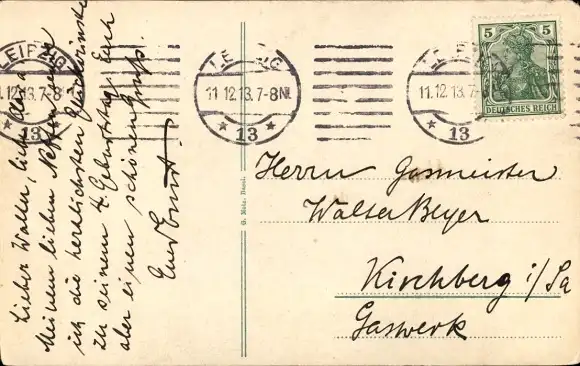 LEIPZIG
11.12.13.7-8N.
* 13 *
LEIPZIG
11.12.13.7-8N.
* 13 *
LEIPZIG
11.12.13.7-8
* 13
5 5
DEUTSCHES REICH
Lieber Walter, liebe
Meinem lieben Neffen
ich die herzlichsten Glückwünsche
zu seinem 4. Geburtstage. Euch
aber einen schönen Gruß.
Euer Ernst
G. Metz, Basel.
Herrn Gasmeister
Walter Beyer
Kirchberg i/Sa
Gaswerk